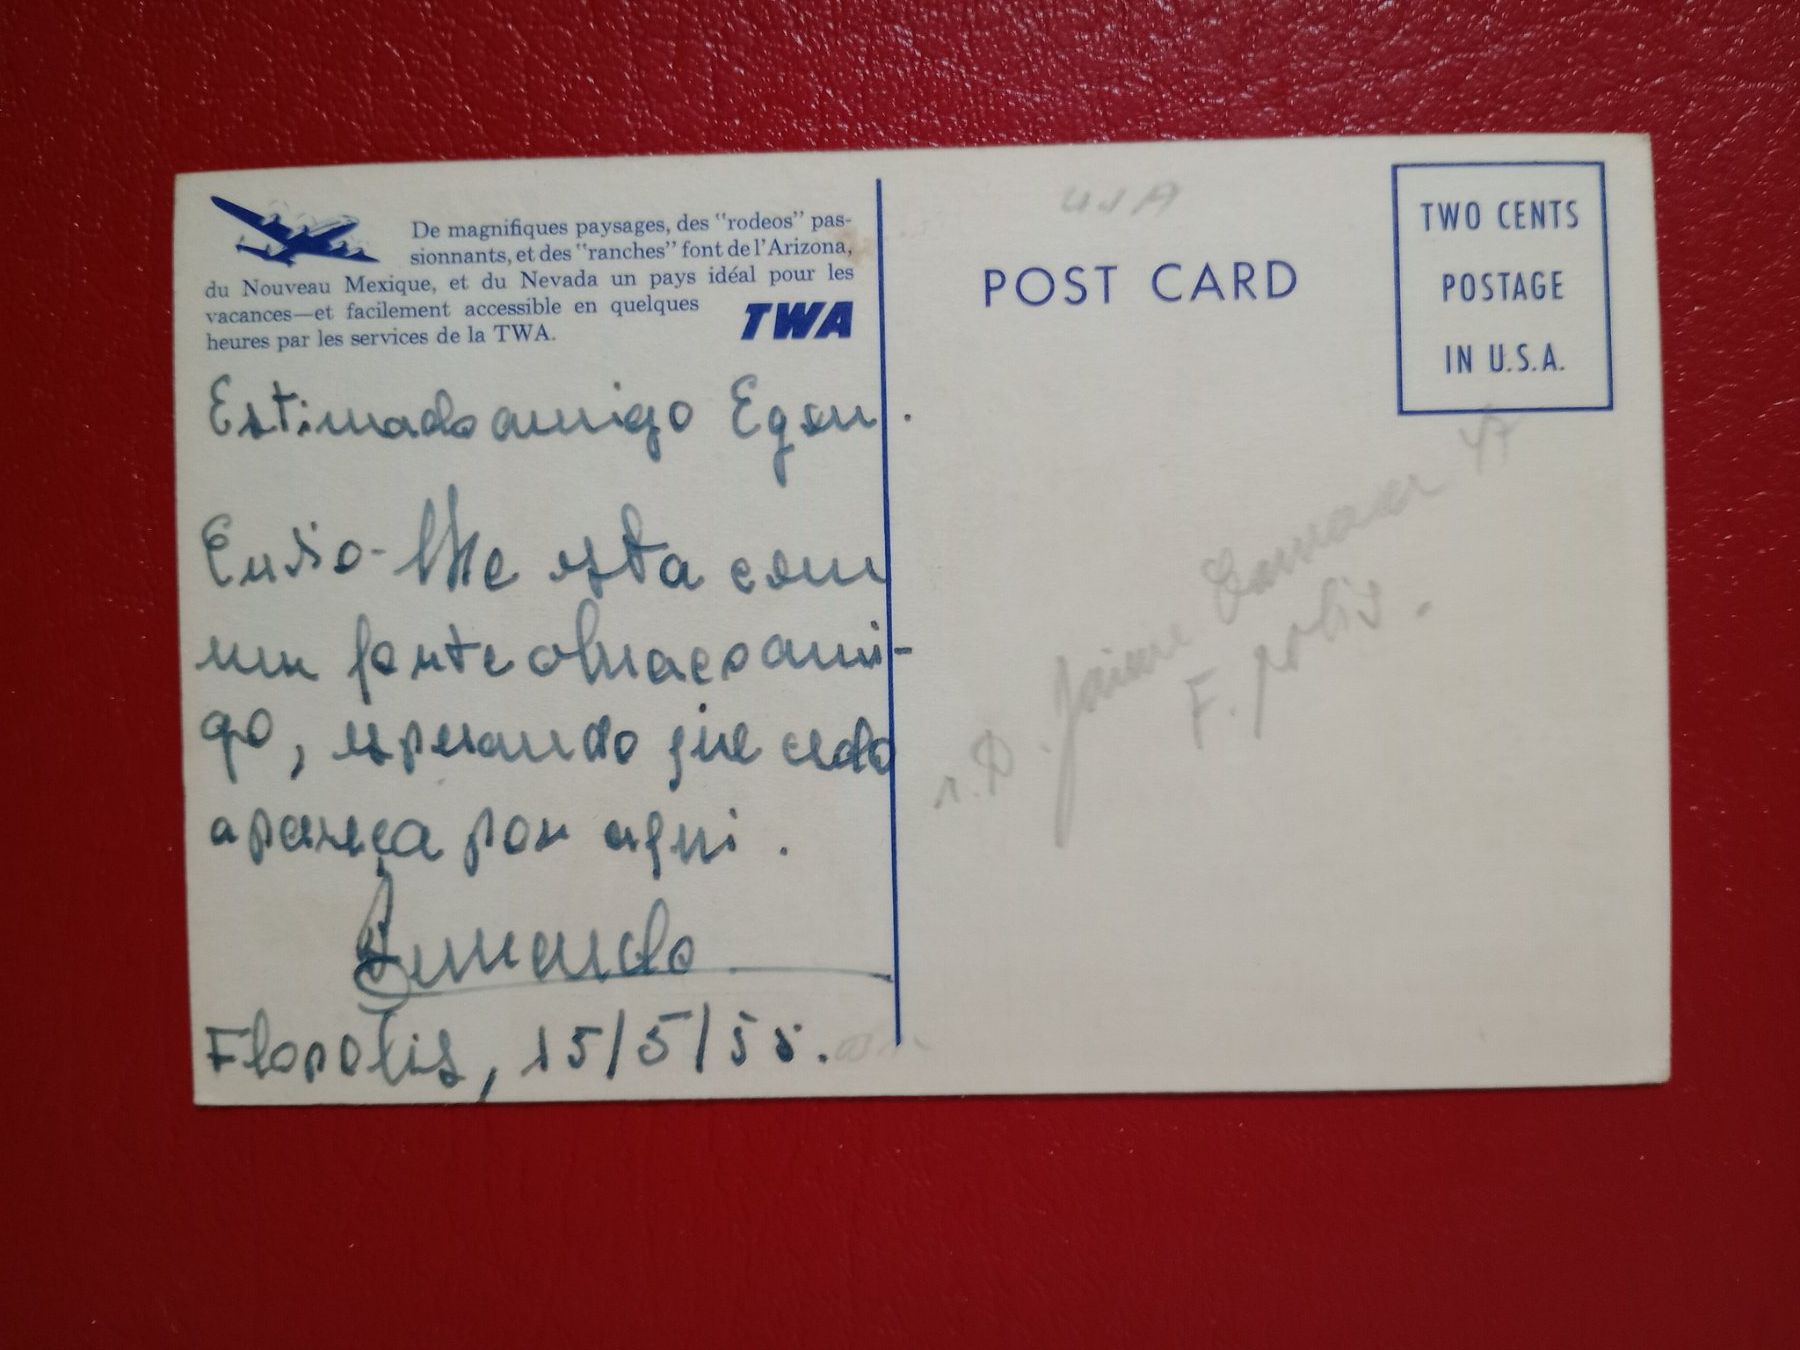 De magnifiques paysages, des "rodeos" pas-
sionnants, et des "ranches" font de l'Arizona,
du Nouveau Mexique, et du Nevada un pays idéal pour les
vacances—et facilement accessible en quelques
heures par les services de la TWA.
TWA
Estimado amigo Egon.
Envio-lhe esta com
um forte abraço ami-
go, esperando que cedo
apareça por aqui.
Armando
Flopolis, 15/5/55.
USA
POST CARD
TWO CENTS
POSTAGE
IN U.S.A.
r. D. Jaime Camara 47
F. polis.